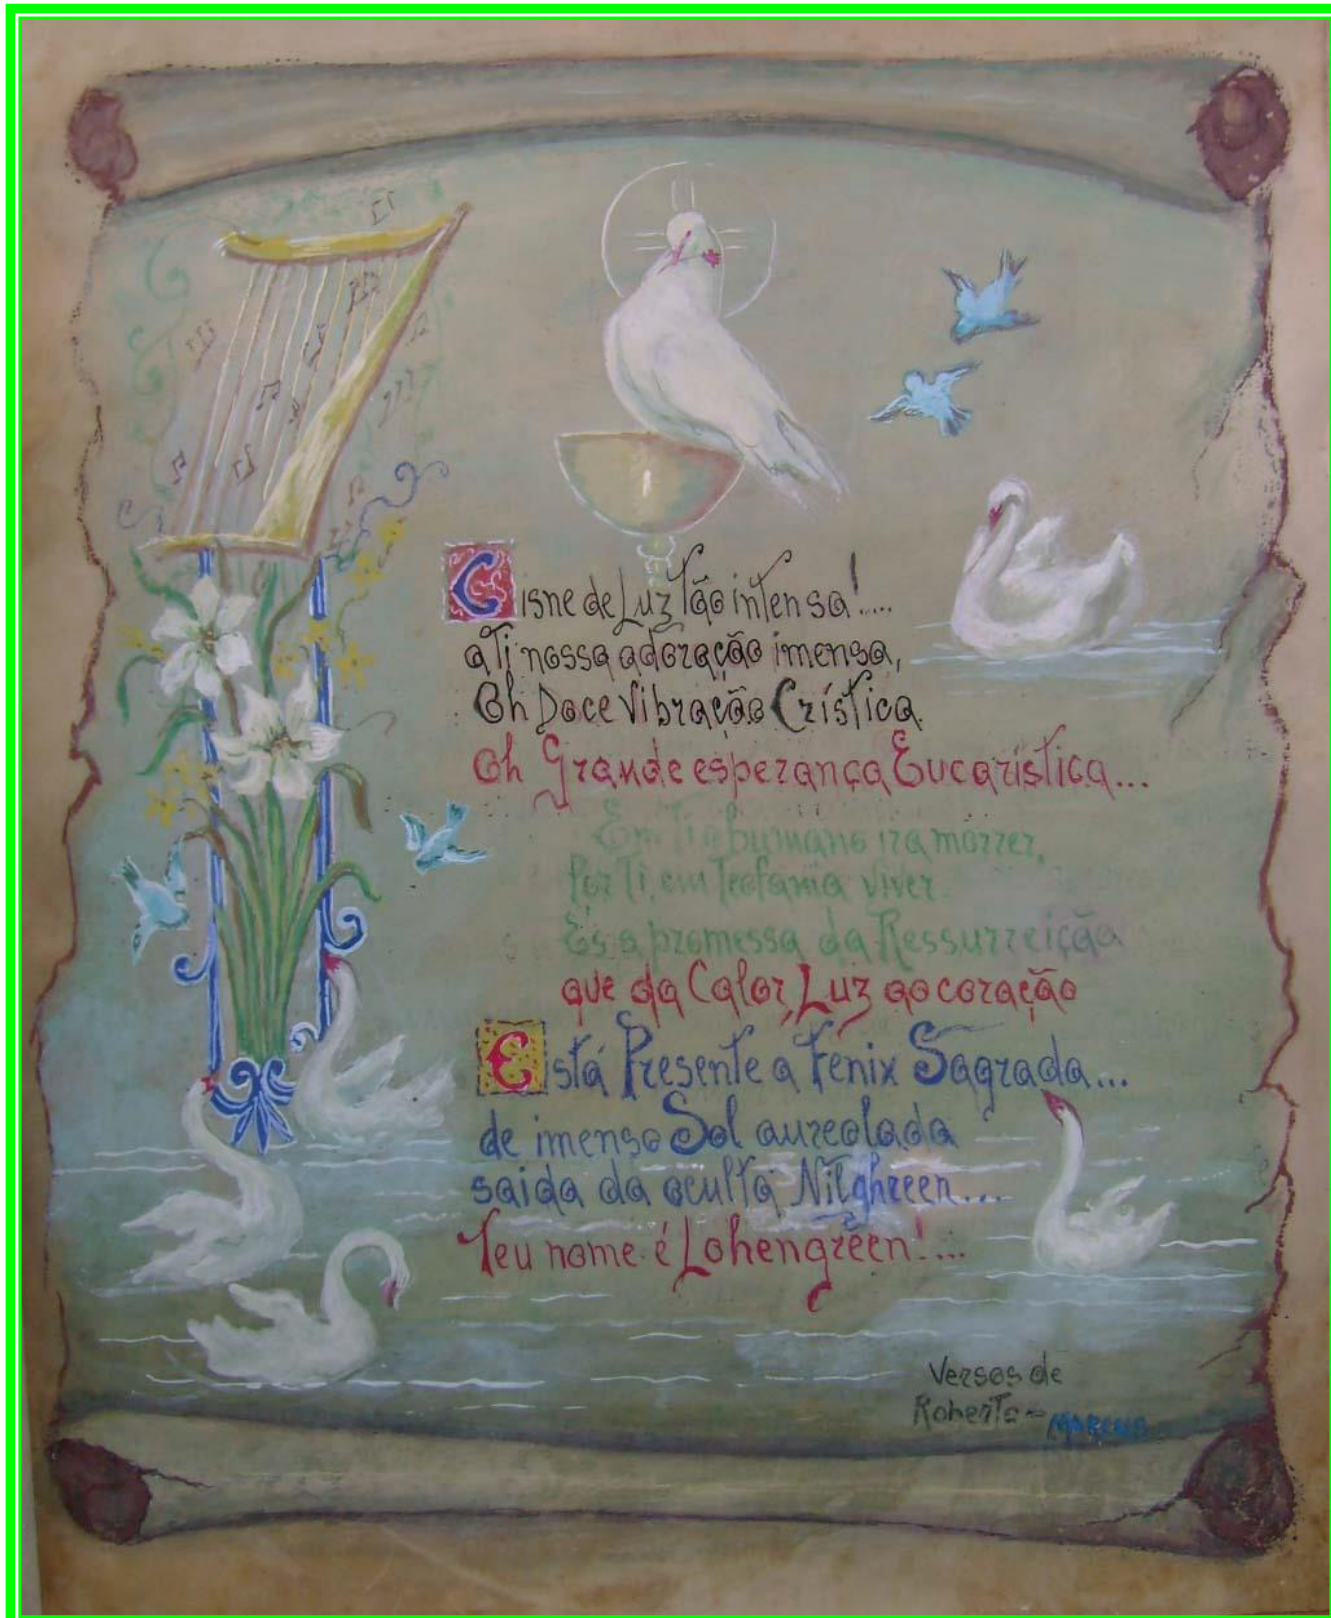 Cisne de Luz tão intensa!....
a Ti nossa adoração imensa,
Oh Doce Vibração Crística.
Oh Grande esperança Eucarística...
Em Ti o humano ira morrer,
Por Ti, em Teofania viver.
És a promessa da Ressurreição
que da Calor, Luz ao coração
Está Presente a Fenix Sagrada...
de imenso Sol aureolada
saida da oculta Nilghreen....
Teu nome é Lohengreen!...
Versos de
Roberto -